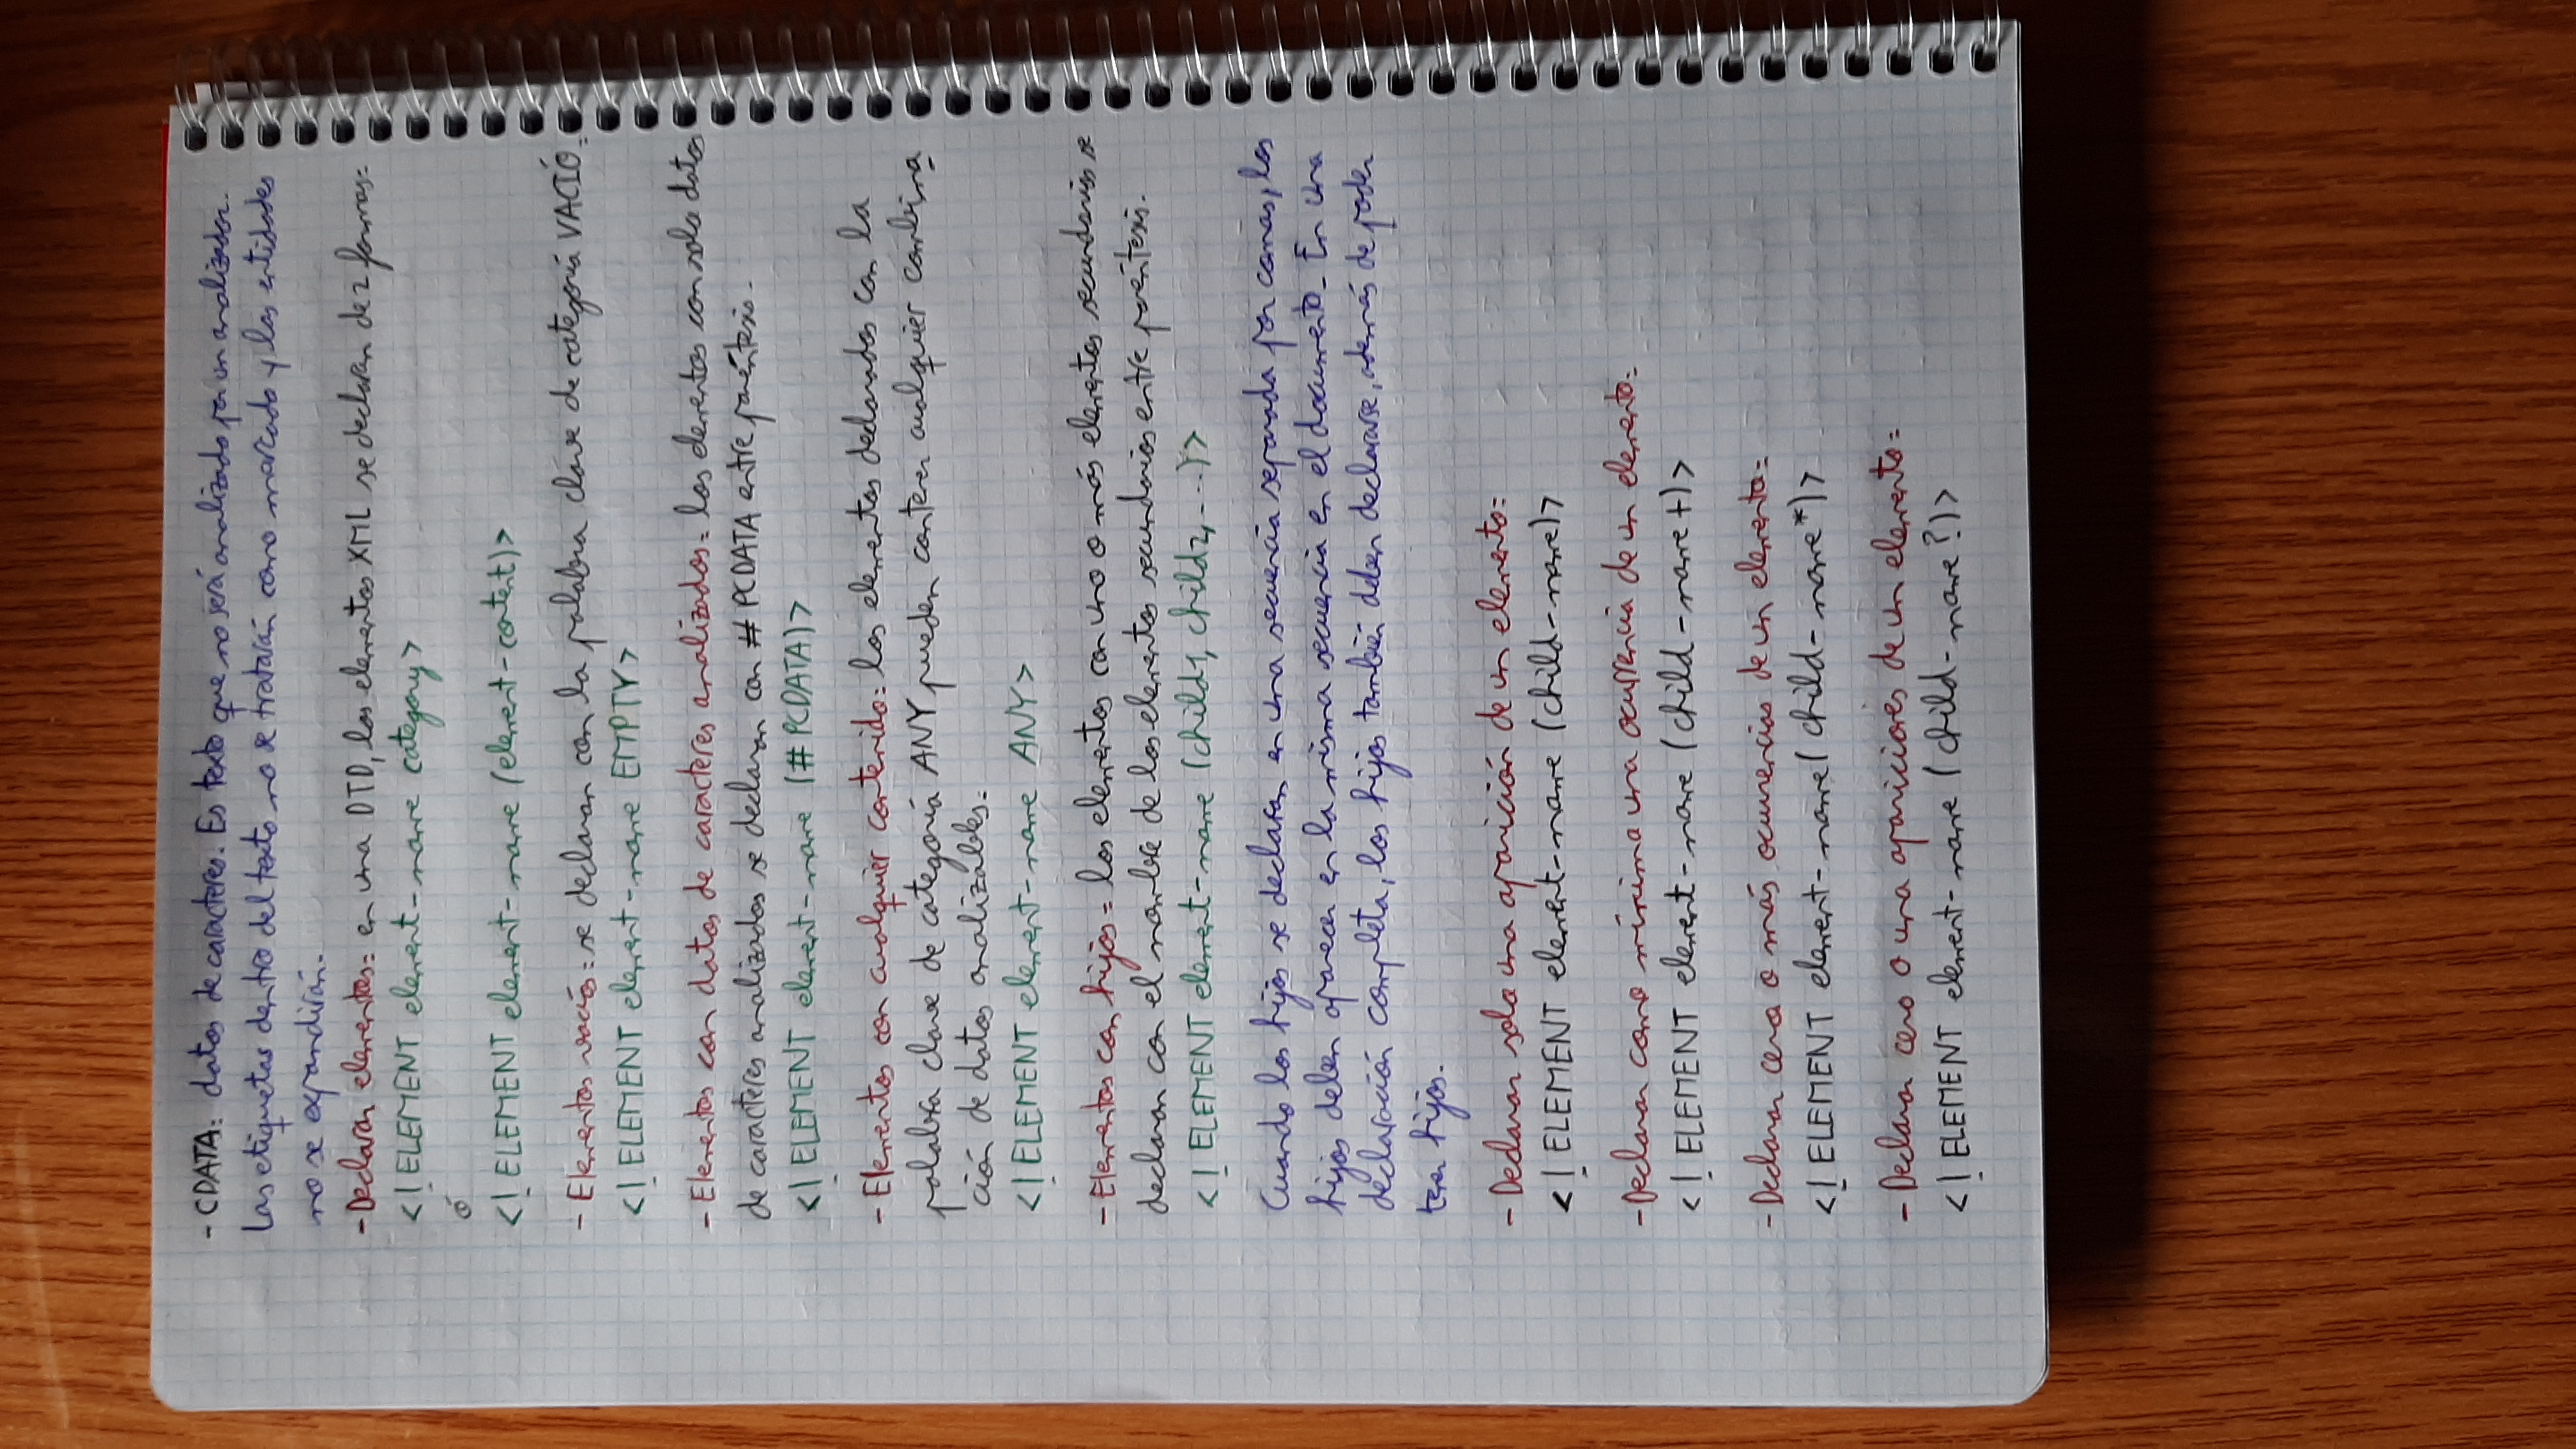 - CDATA: datos de caracteres. Es texto que no será analizado por un analizador.
Las etiquetas dentro del texto no se tratarán como marcado y las entidades
no se expandirán.
- Declarar elementos: en una DTD, los elementos XML se declaran de 2 formas:
<! ELEMENT element-name category>
ó
<! ELEMENT element-name (element-content)>
- Elementos vacíos: se declaran con la palabra clave de categoría VACÍO:
<! ELEMENT element-name EMPTY>
- Elementos con datos de caracteres analizados: los elementos con solo datos
de caracteres analizados se declaran con # PCDATA entre paréntesis.
<! ELEMENT element-name (# PCDATA)>
- Elementos con cualquier contenido: los elementos declarados con la
palabra clave de categoría ANY pueden contener cualquier combina
ción de datos analizables:
<! ELEMENT element-name ANY>
- Elementos con hijos: los elementos con uno o más elementos secundarios se
declaran con el nombre de los elementos secundarios entre paréntesis.
<! ELEMENT element-name (child1, child2, ...)>
Cuando los hijos se declaran en una secuencia separada por comas, los
hijos deben aparecer en la misma secuencia en el documento. En una
declaración completa, los hijos también deben declararse, además de poder
tener hijos.
- Declarar solo una aparición de un elemento:
<! ELEMENT element-name (child-name)>
- Declarar como mínimo una ocurrencia de un elemento:
<! ELEMENT element-name (child-name+)>
- Declarar cero o más ocurrencias de un elemento:
<! ELEMENT element-name (child-name*)>
- Declarar cero o una apariciones de un elemento:
<! ELEMENT element-name (child-name?)>